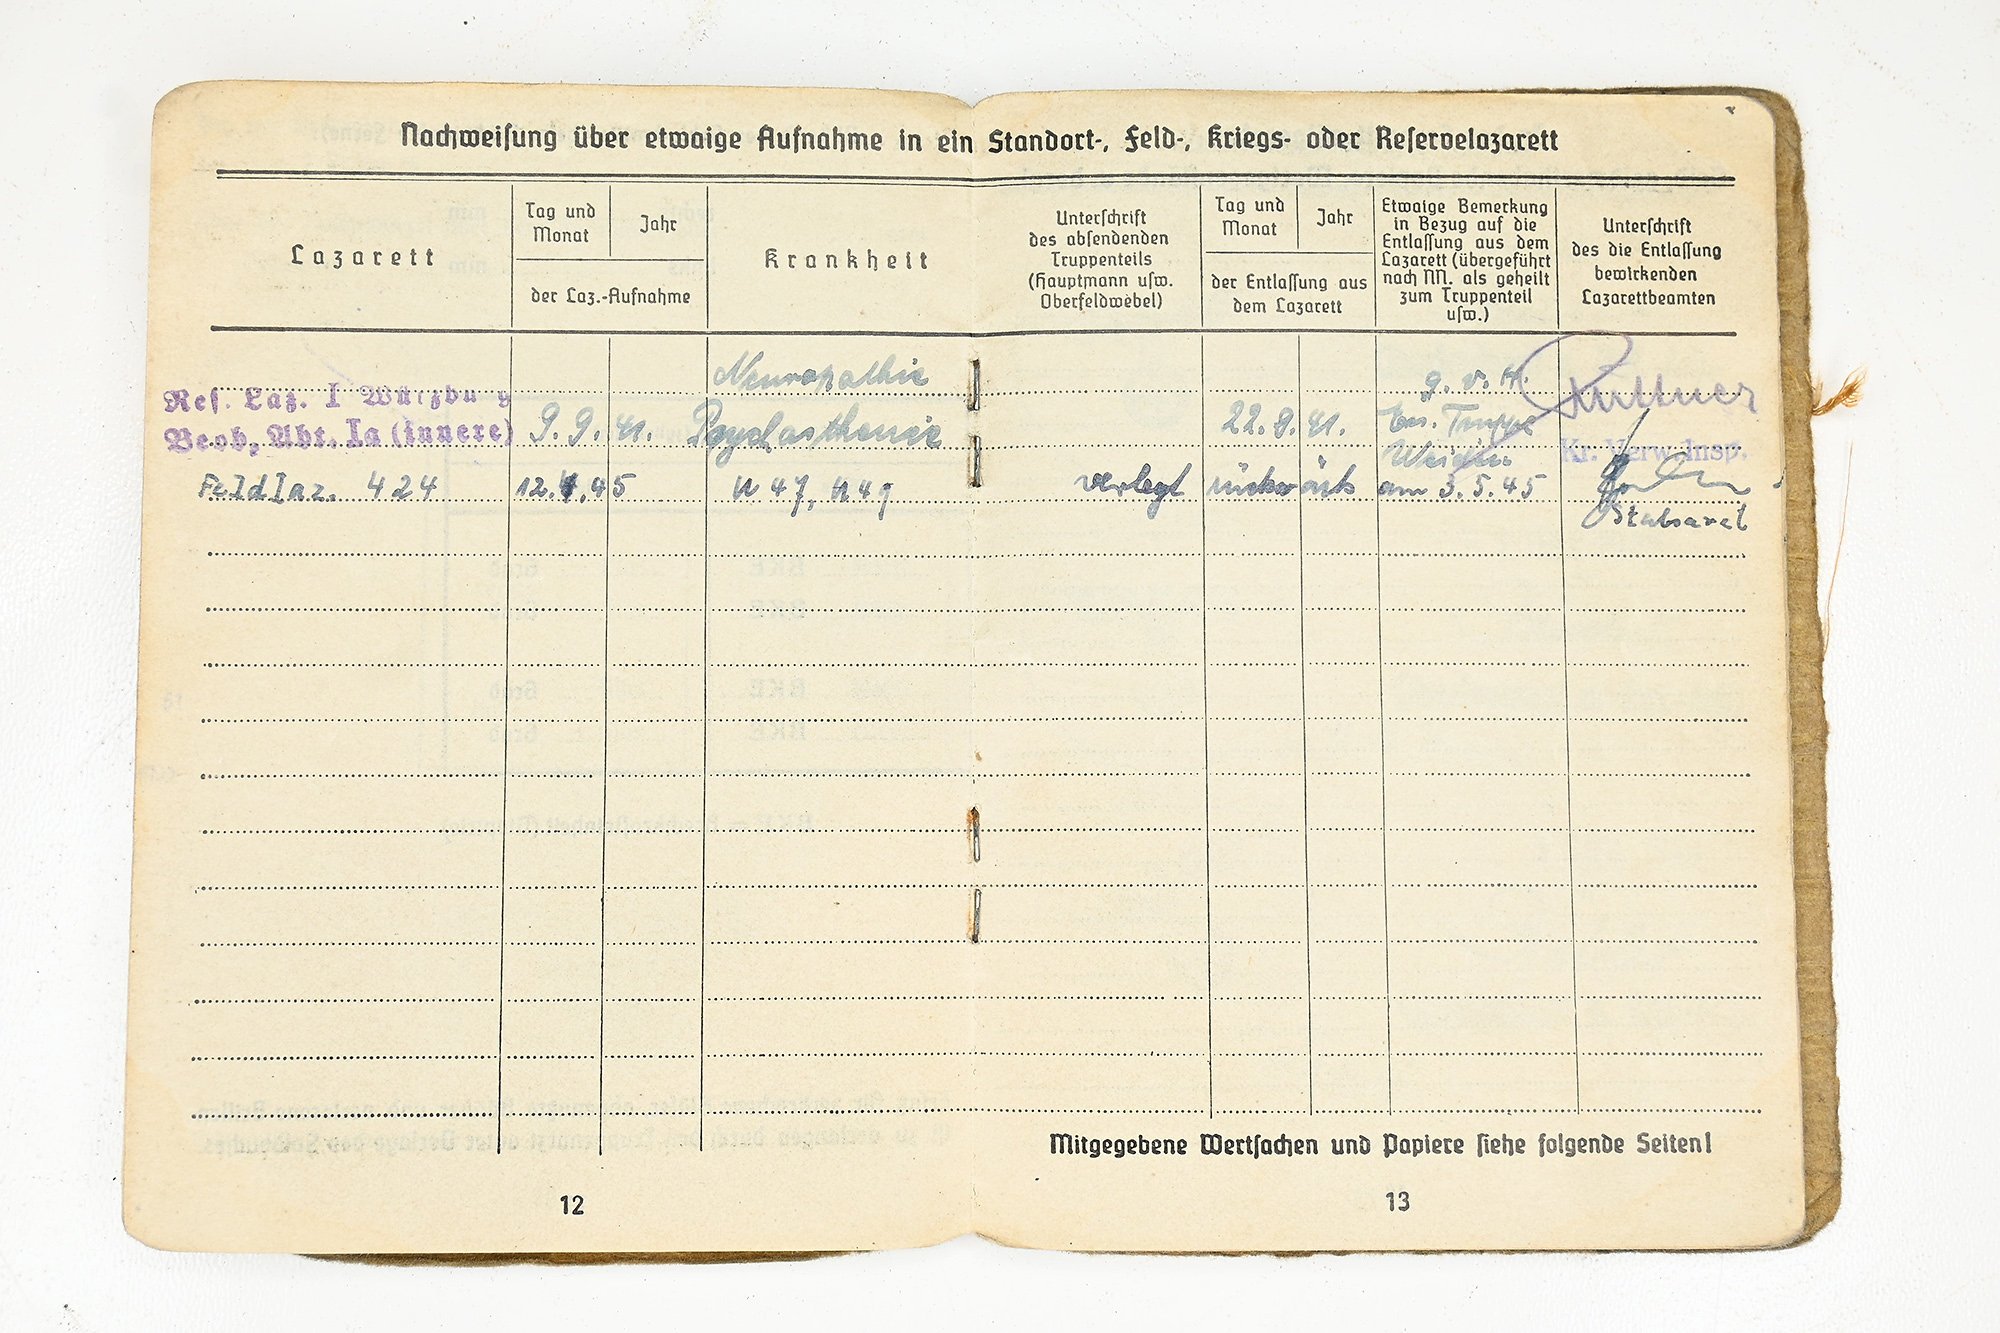 Nachweisung über etwaige Aufnahme in ein Standort-, Feld-, Kriegs- oder Reservelazarett
Lazarett
Tag und
Monat
Jahr
der Laz.-Aufnahme
Krankheit
Unterschrift
des absendenden
Truppenteils
(Hauptmann usw.
Oberfeldwebel)
Tag und
Monat
Jahr
der Entlassung aus
dem Lazarett
Etwaige Bemerkung
in Bezug auf die
Entlassung aus dem
Lazarett (übergeführt
nach NN. als geheilt
zum Truppenteil
usw.)
Unterschrift
des die Entlassung
bewirkenden
Lazarettbeamten
Neuropathie g. v. H.
Res. Laz. I Würzburg
Beob. Abt. Ia (innere) 9. 9. 41. Psychasthenie 22. 9. 41. Ers. Truppe
Weiden Kr. Verw. Insp.
Feldlaz. 424 12.4.45 N 47, N 49 verlegt rückwärts am 3.5.45
Stabsarzt
Mitgegebene Wertsachen und Papiere siehe folgende Seiten!
12
13